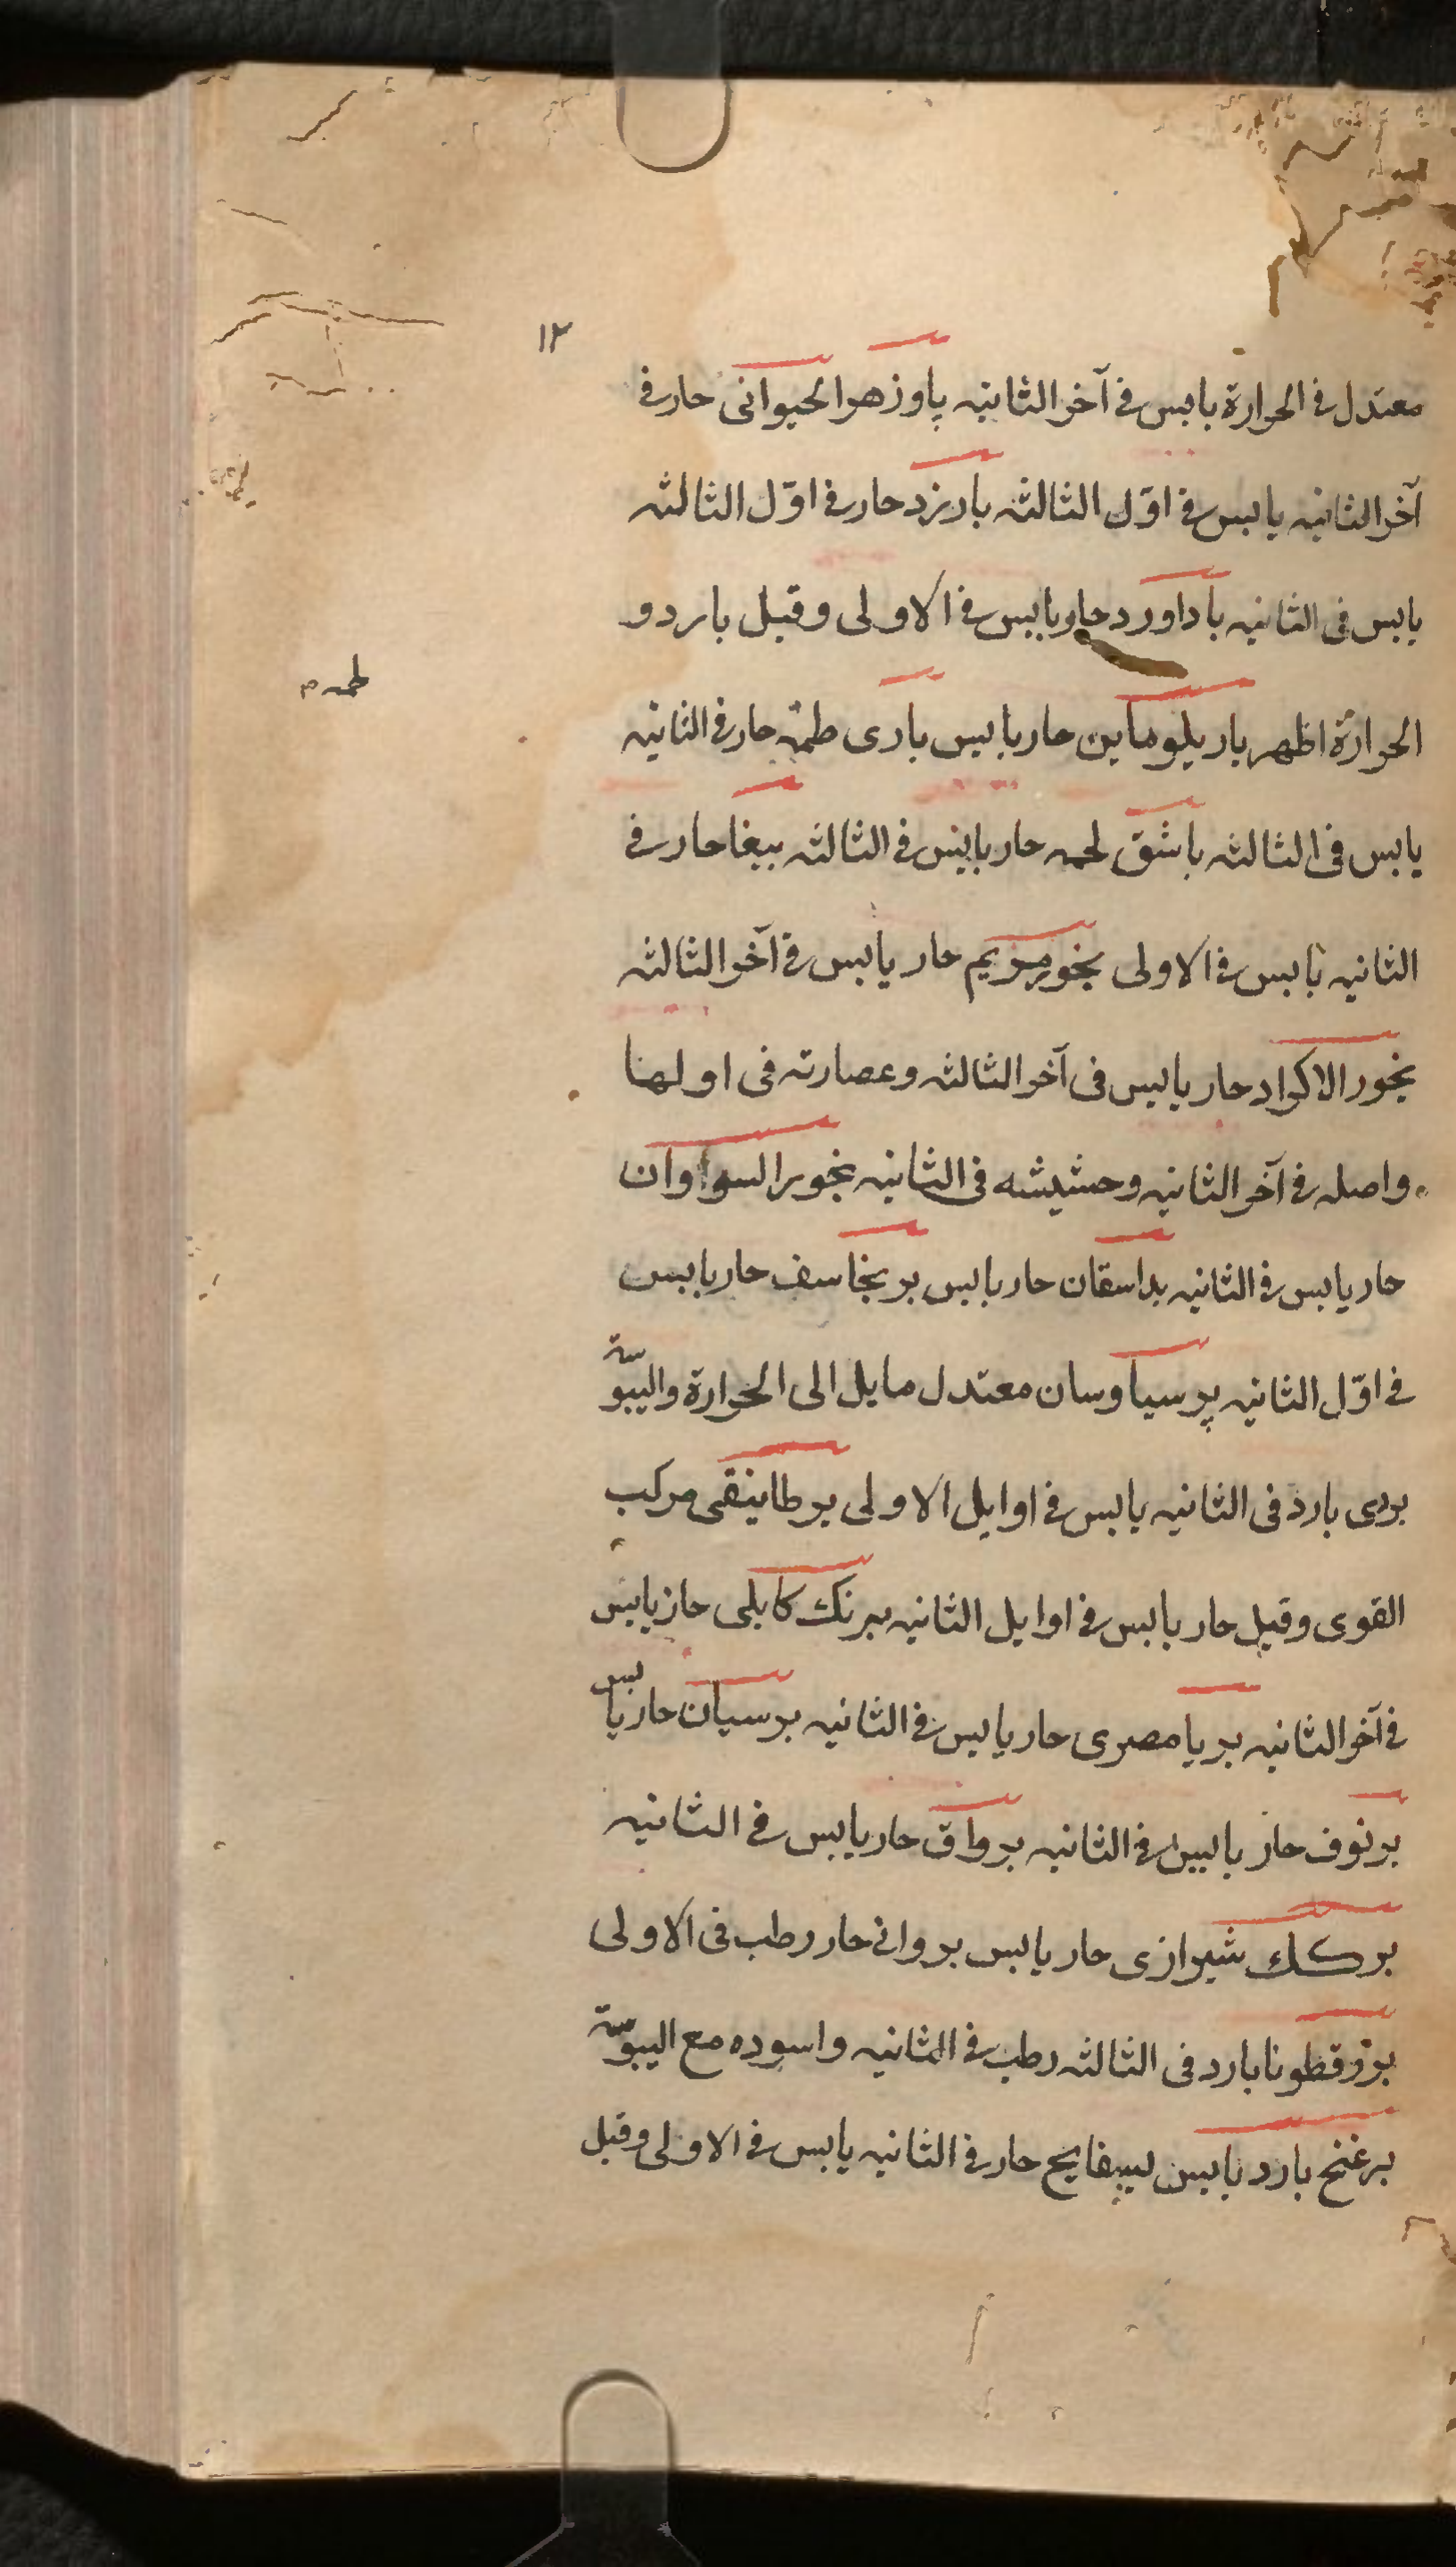 ١٢
معتدل فى الحرارة يابس فى آخر الثانيه پاوزهر الحيوانى حار فى
آخر الثانيه يابس فى اوّل الثالثه بارزد حار فى اوّل الثالثه
يابس فى الثانيه باداورد حار يابس فى الاولى وقيل بارد و
الحرارة اظهر باريلومابن حار يابس بارى طمه حار فى الثانيه
طمه م
يابس فى الثالثه باشق لحمه حار يابس فى الثالثه ببغا حار فى
الثانيه يابس فى الاولى بخور مريم حار يابس فى آخر الثالثه
بخور الاكراد حار يابس فى آخر الثالثه وعصارته فى اولها
واصله فى آخر الثانيه وحشيشه فى الثانيه بخور السوادان
حار يابس فى الثانيه بداسقان حار يابس برنجاسف حار يابس
فى اوّل الثانيه پرسياوسان معتدل مايل الى الحرارة واليبوسة
بردى بارد فى الثانيه يابس فى اوايل الاولى برطانيقى مركب
القوى وقيل حار يابس فى اوايل الثانيه برنك كابلى حار يابس
فى آخر الثانيه بريا مصرى حار يابس فى الثانيه برسيان حار يابس
برنوف حار يابس فى الثانيه برواق حار يابس فى الثانيه
بركك شيرازى حار يابس بروانى حار رطب فى الاولى
بزرقطونا بارد فى الثالثه رطب فى الثانيه واسوده مع اليبوسة
بزغنج بارد يابس بسفايج حار فى الثانيه يابس فى الاولى وقيل